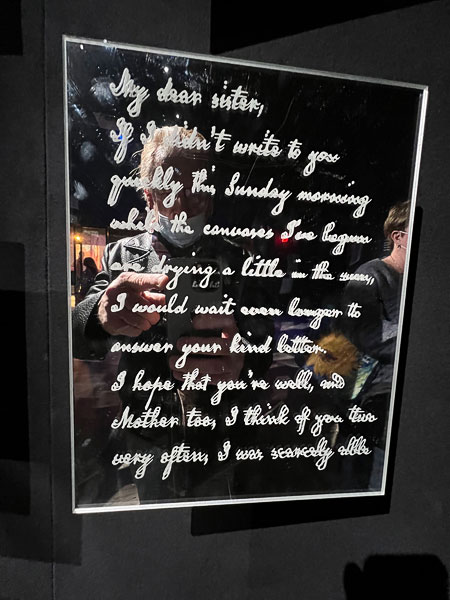 My dear sister,
If I didn't write to you
quickly this Sunday morning
while the canvases I've begun
are drying a little in the sun,
I would wait even longer to
answer your kind letter.
I hope that you're well, and
Mother too, I think of you two
very often, I was scarcely able